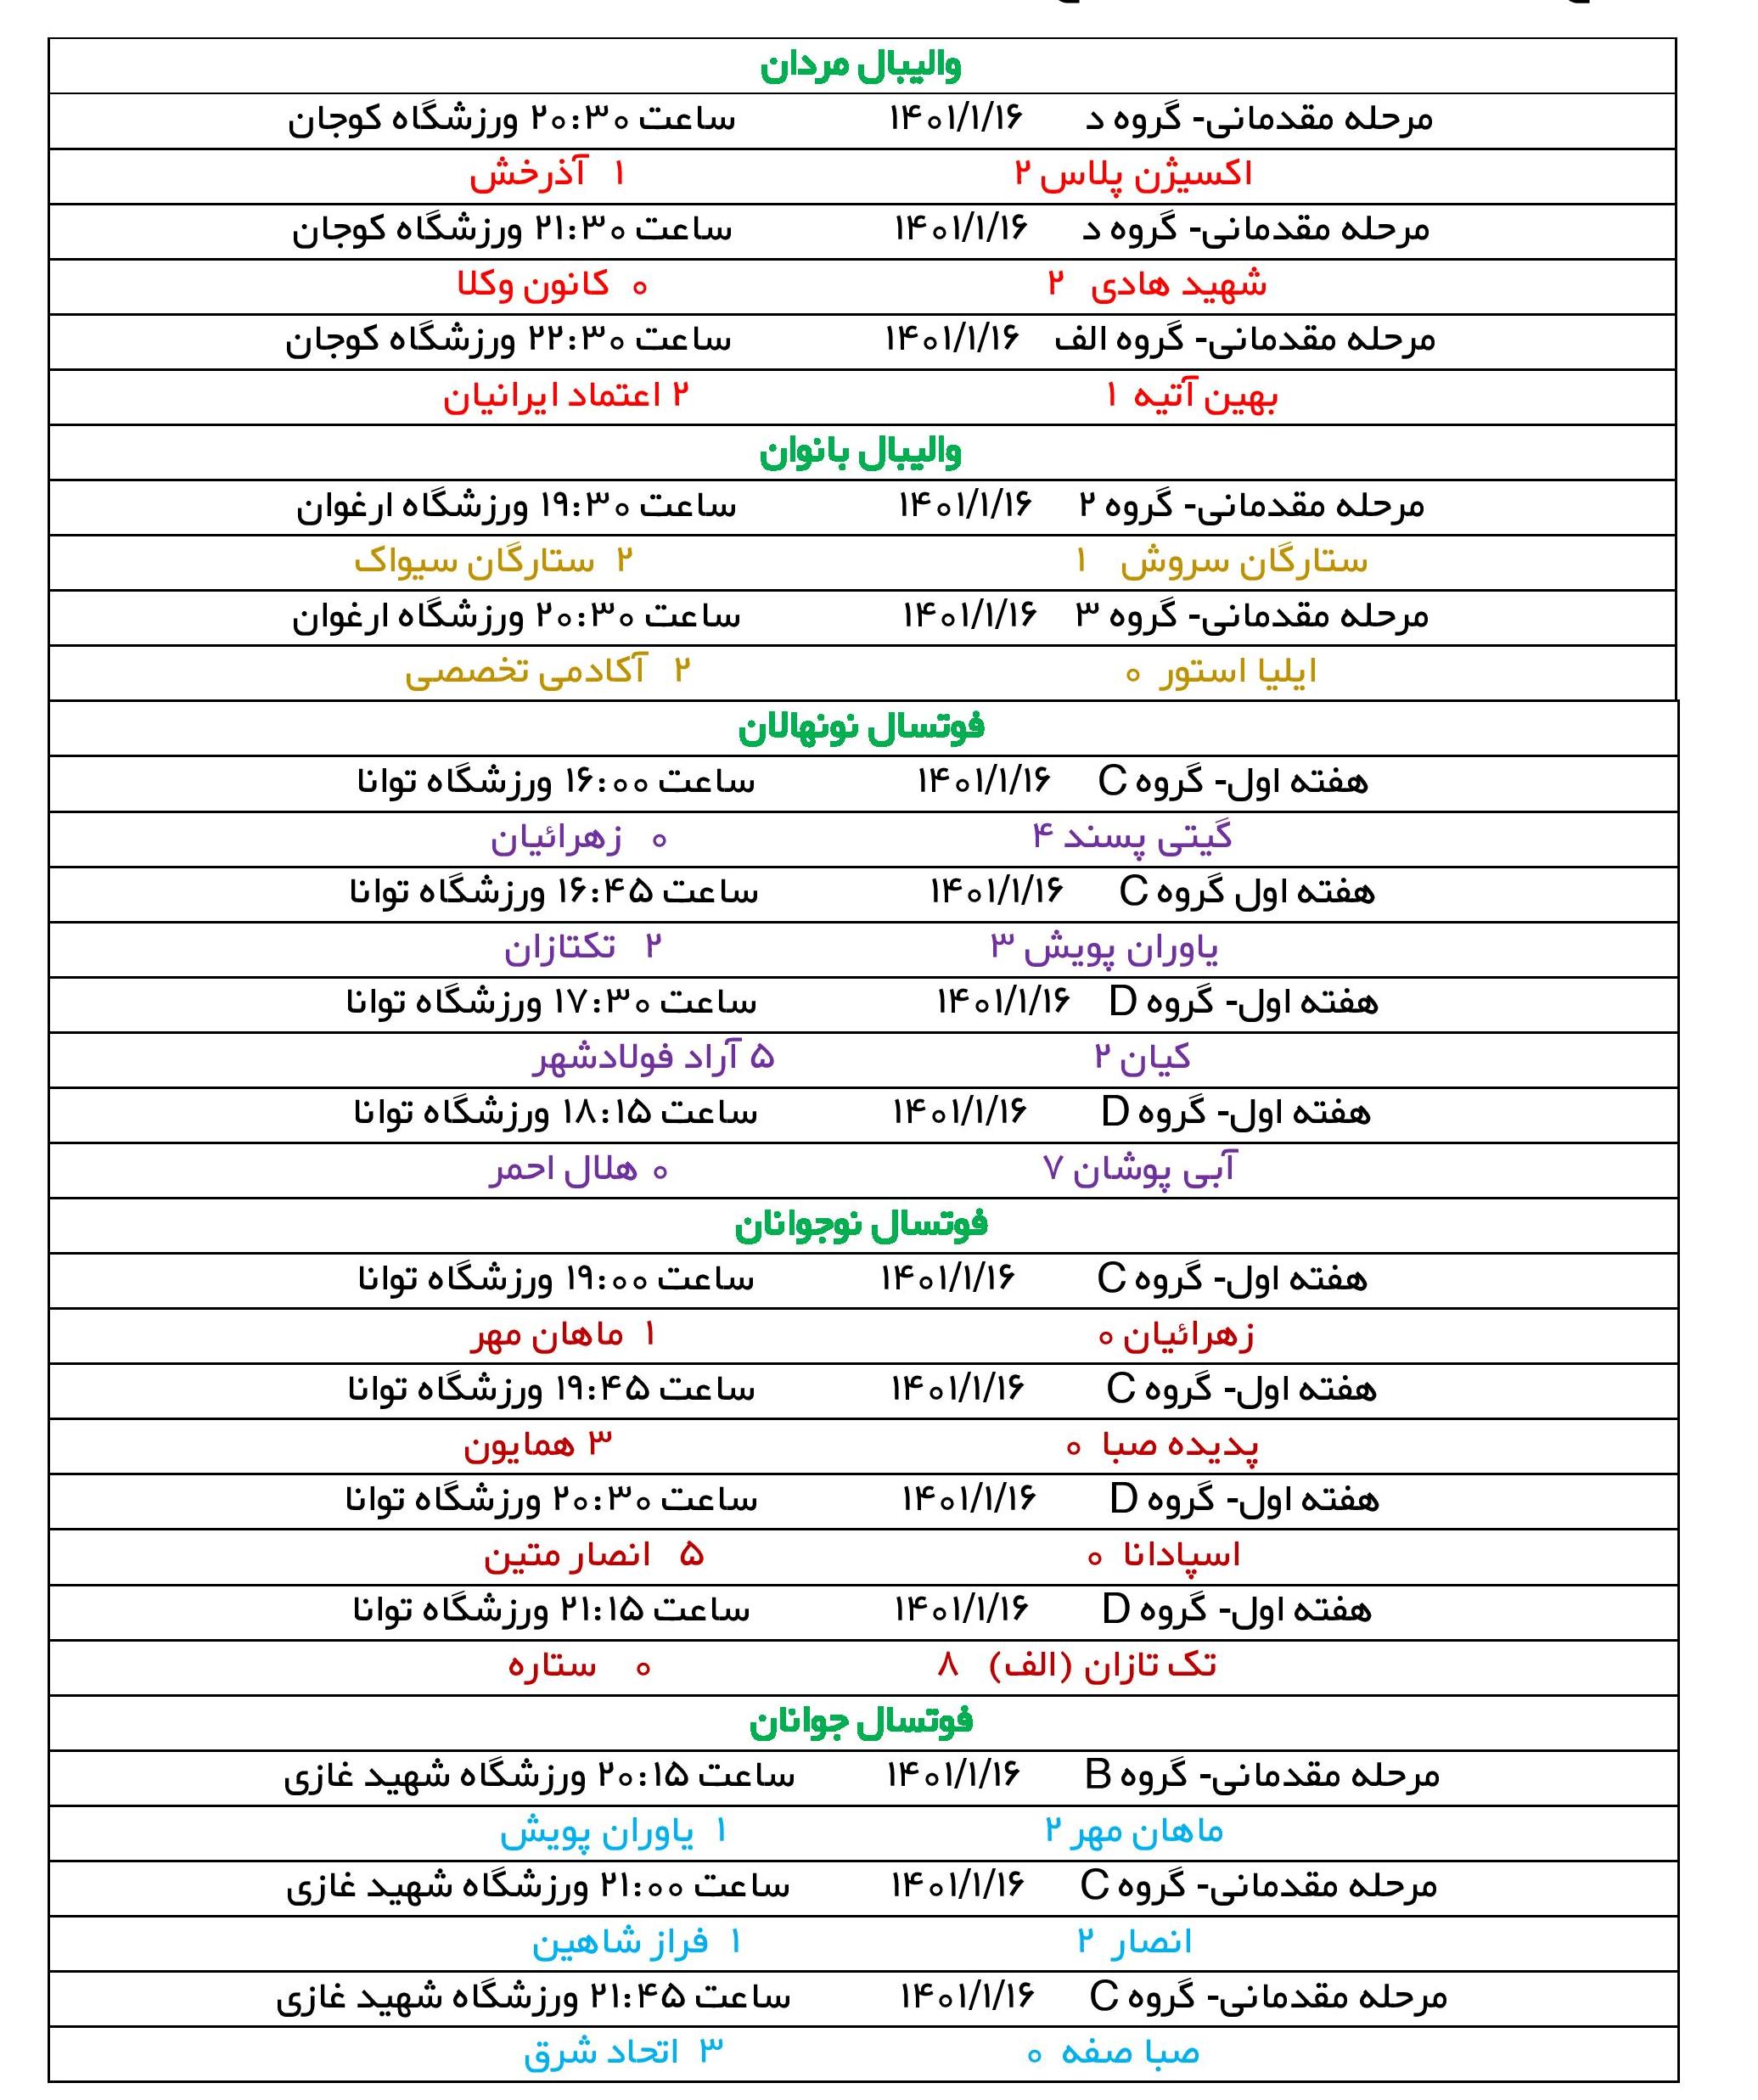 والیبال مردان
مرحله مقدمانی- گروه د ۱۴۰۱/۱/۱۶ ساعت ۲۰:۳۰ ورزشگاه کوجان
اکسیژن پلاس ۲ ۱ آذرخش
مرحله مقدمانی- گروه د ۱۴۰۱/۱/۱۶ ساعت ۲۱:۳۰ ورزشگاه کوجان
شهید هادی ۲ ۰ کانون وکلا
مرحله مقدمانی- گروه الف ۱۴۰۱/۱/۱۶ ساعت ۲۲:۳۰ ورزشگاه کوجان
بهین آتیه ۱ ۲ اعتماد ایرانیان
والیبال بانوان
مرحله مقدمانی- گروه ۲ ۱۴۰۱/۱/۱۶ ساعت ۱۹:۳۰ ورزشگاه ارغوان
ستارگان سروش ۱ ۲ ستارگان سیواک
مرحله مقدمانی- گروه ۳ ۱۴۰۱/۱/۱۶ ساعت ۲۰:۳۰ ورزشگاه ارغوان
ایلیا استور ۰ ۲ آکادمی تخصصی
فوتسال نونهالان
هفته اول- گروه C ۱۴۰۱/۱/۱۶ ساعت ۱۶:۰۰ ورزشگاه توانا
گیتی پسند ۴ ۰ زهرائیان
هفته اول گروه C ۱۴۰۱/۱/۱۶ ساعت ۱۶:۴۵ ورزشگاه توانا
یاوران پویش ۳ ۲ تکتازان
هفته اول- گروه D ۱۴۰۱/۱/۱۶ ساعت ۱۷:۳۰ ورزشگاه توانا
کیان ۲ ۵ آراد فولادشهر
هفته اول- گروه D ۱۴۰۱/۱/۱۶ ساعت ۱۸:۱۵ ورزشگاه توانا
آبی پوشان ۷ ۰ هلال احمر
فوتسال نوجوانان
هفته اول- گروه C ۱۴۰۱/۱/۱۶ ساعت ۱۹:۰۰ ورزشگاه توانا
زهرائیان ۰ ۱ ماهان مهر
هفته اول- گروه C ۱۴۰۱/۱/۱۶ ساعت ۱۹:۴۵ ورزشگاه توانا
پدیده صبا ۰ ۳ همایون
هفته اول- گروه D ۱۴۰۱/۱/۱۶ ساعت ۲۰:۳۰ ورزشگاه توانا
اسپادانا ۰ ۵ انصار متین
هفته اول- گروه D ۱۴۰۱/۱/۱۶ ساعت ۲۱:۱۵ ورزشگاه توانا
تک تازان (الف) ۸ ۰ ستاره
فوتسال جوانان
مرحله مقدمانی- گروه B ۱۴۰۱/۱/۱۶ ساعت ۲۰:۱۵ ورزشگاه شهید غازی
ماهان مهر ۲ ۱ یاوران پویش
مرحله مقدمانی- گروه C ۱۴۰۱/۱/۱۶ ساعت ۲۱:۰۰ ورزشگاه شهید غازی
انصار ۲ ۱ فراز شاهین
مرحله مقدمانی- گروه C ۱۴۰۱/۱/۱۶ ساعت ۲۱:۴۵ ورزشگاه شهید غازی
صبا صفه ۰ ۳ اتحاد شرق